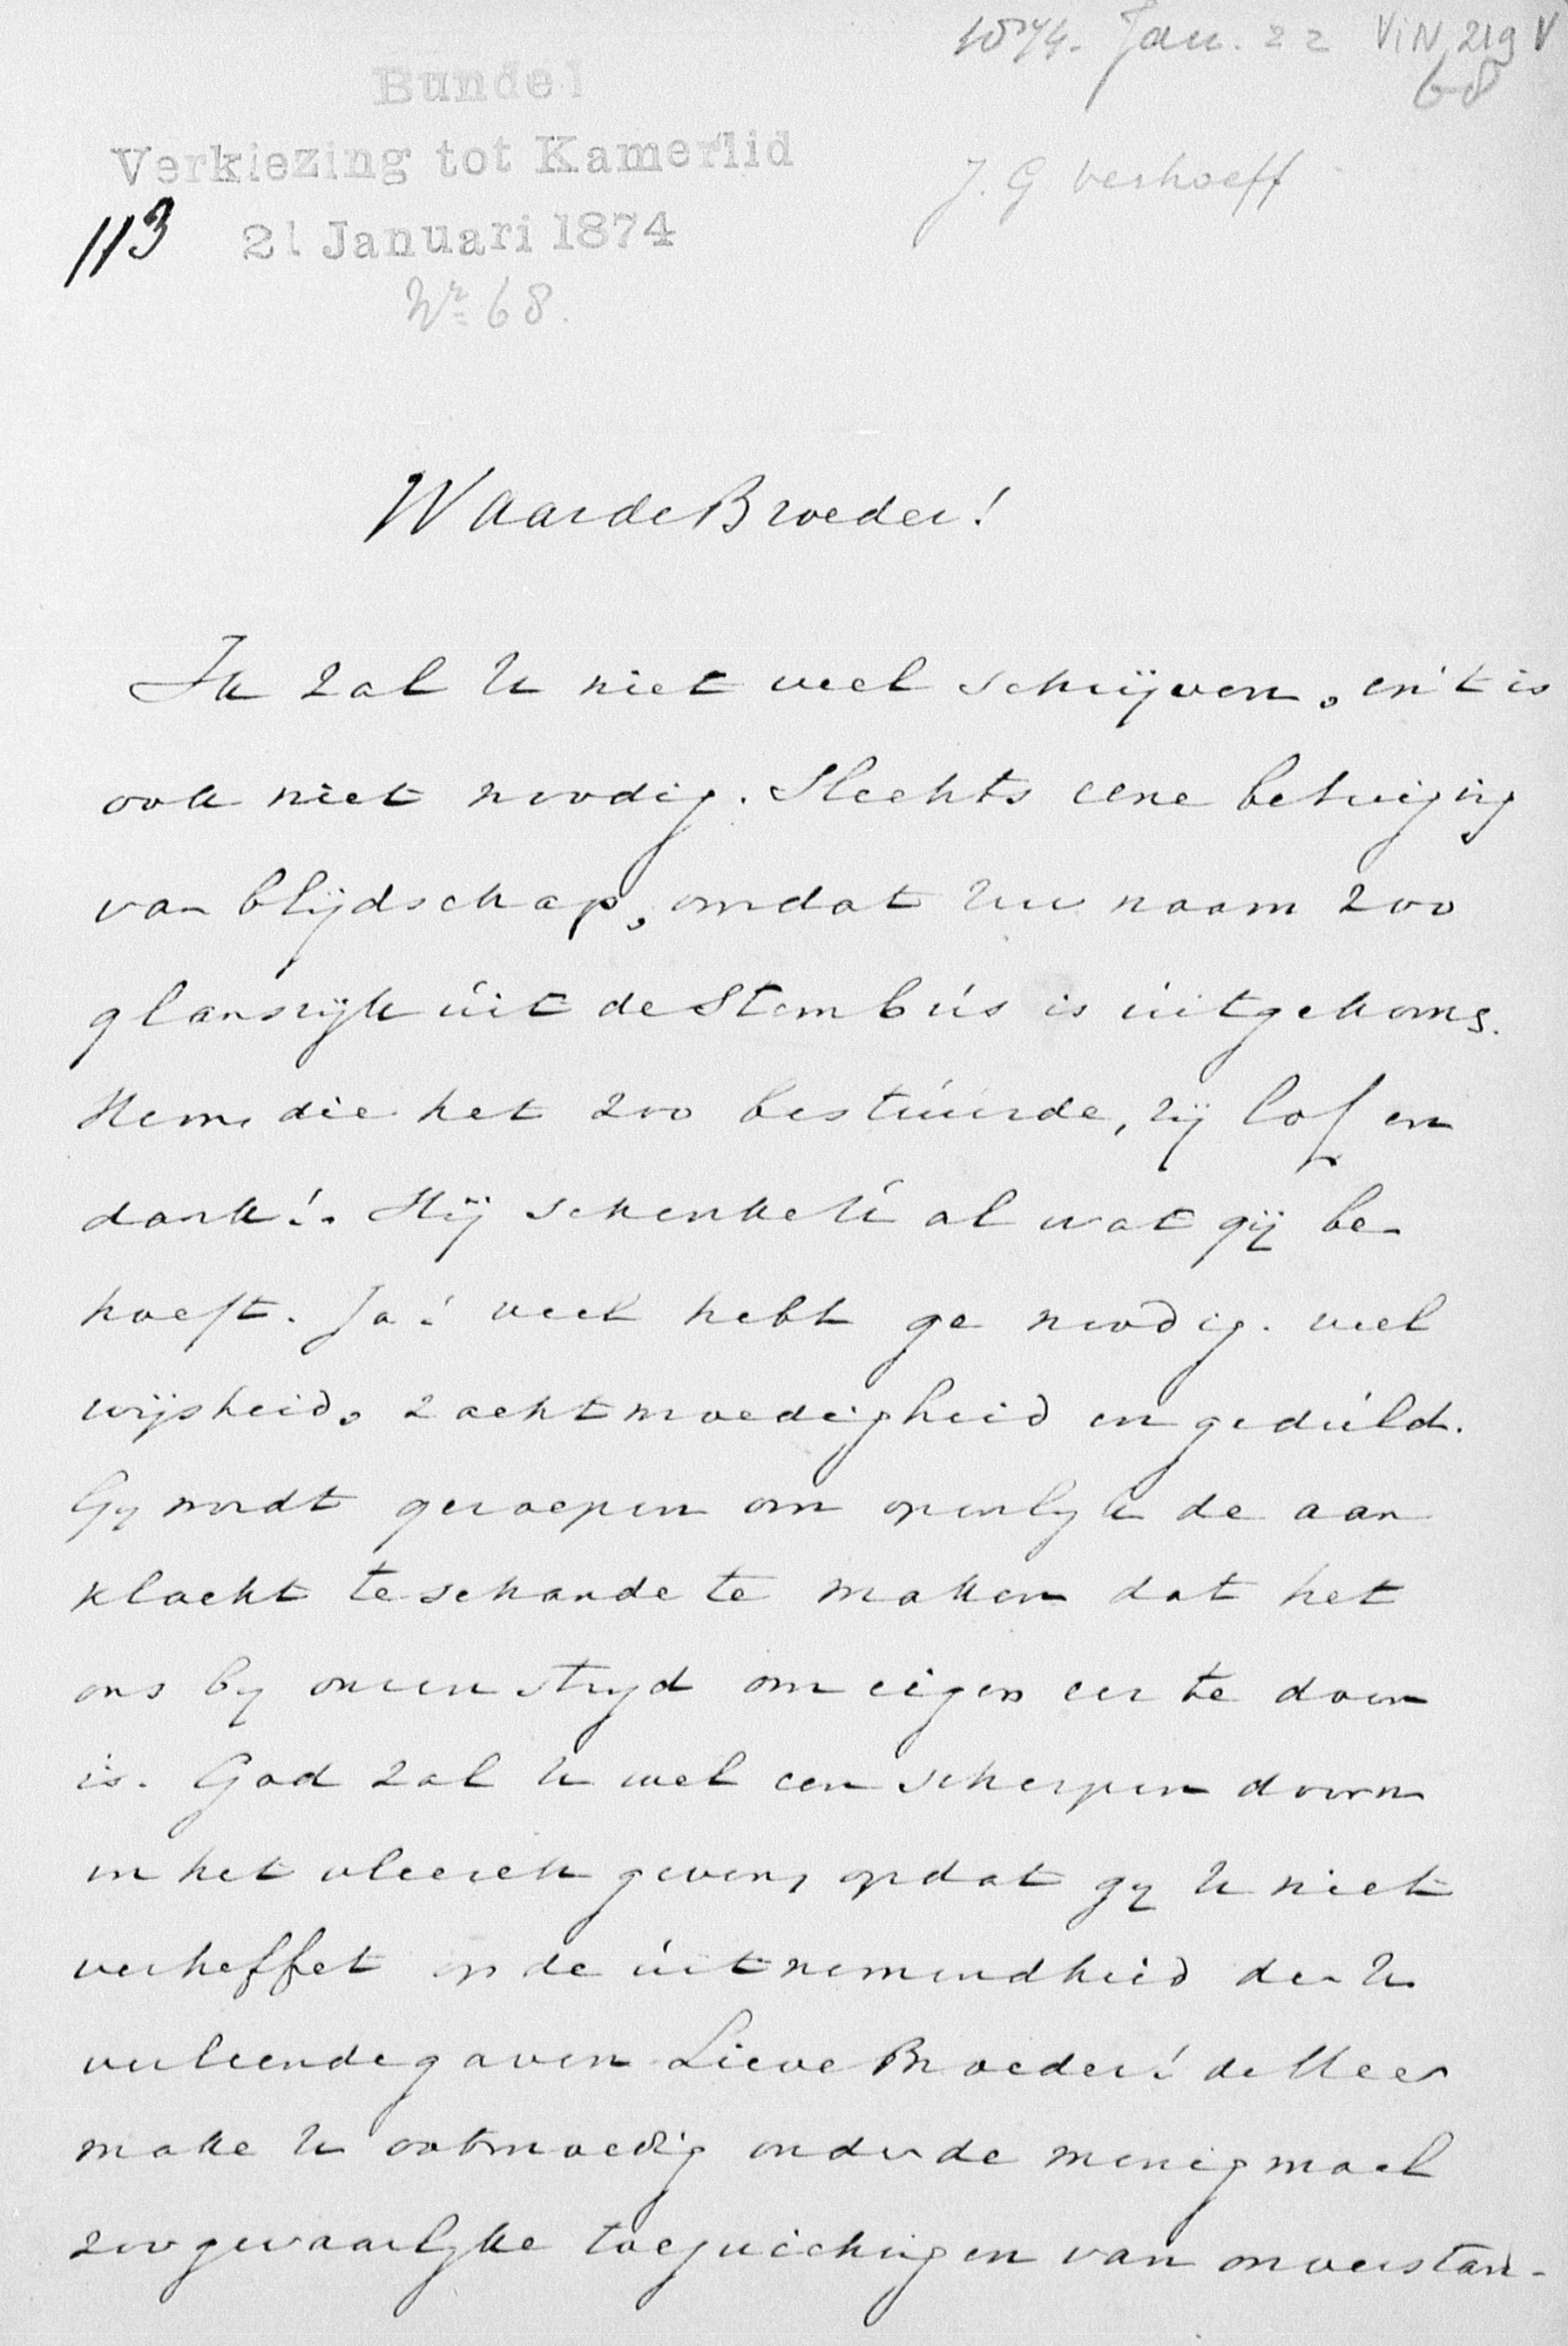 1874. Jan. 22 VIN 219 V
68
Bundel
Verkiezing tot Kamerlid
J. G Verhoeff
113
21 Januari 1874
Nr 68.
Waarde Broeder!
Ik zal U niet veel schrijven, en 't is
ook niet noodig. Slechts eene betuiging
van blijdschap, omdat Uw naam zoo
glansrijk uit de Stembus is uitgekoms.
Hem, die het zoo bestuurde, zij lof en
dank!. Hij schenke U al wat gij be-
hoeft. Ja! veel hebt ge noodig. veel
wijsheid, zachtmoedigheid en geduld.
Gy wordt geroepen om openlyk de aan
klacht te schande te maken dat het
ons by onzen stryd om eigen eer te doen
is. God zal U wel een scherpen doorn
in het vleesch geven, opdat gy U niet
verheffet op de uitnemendheid der U
verleende gaven Lieve Broeder! de Heer
make U ootmoedig onder de menigmaal
zoo gevaarlyke toejuichingen van onverstan-